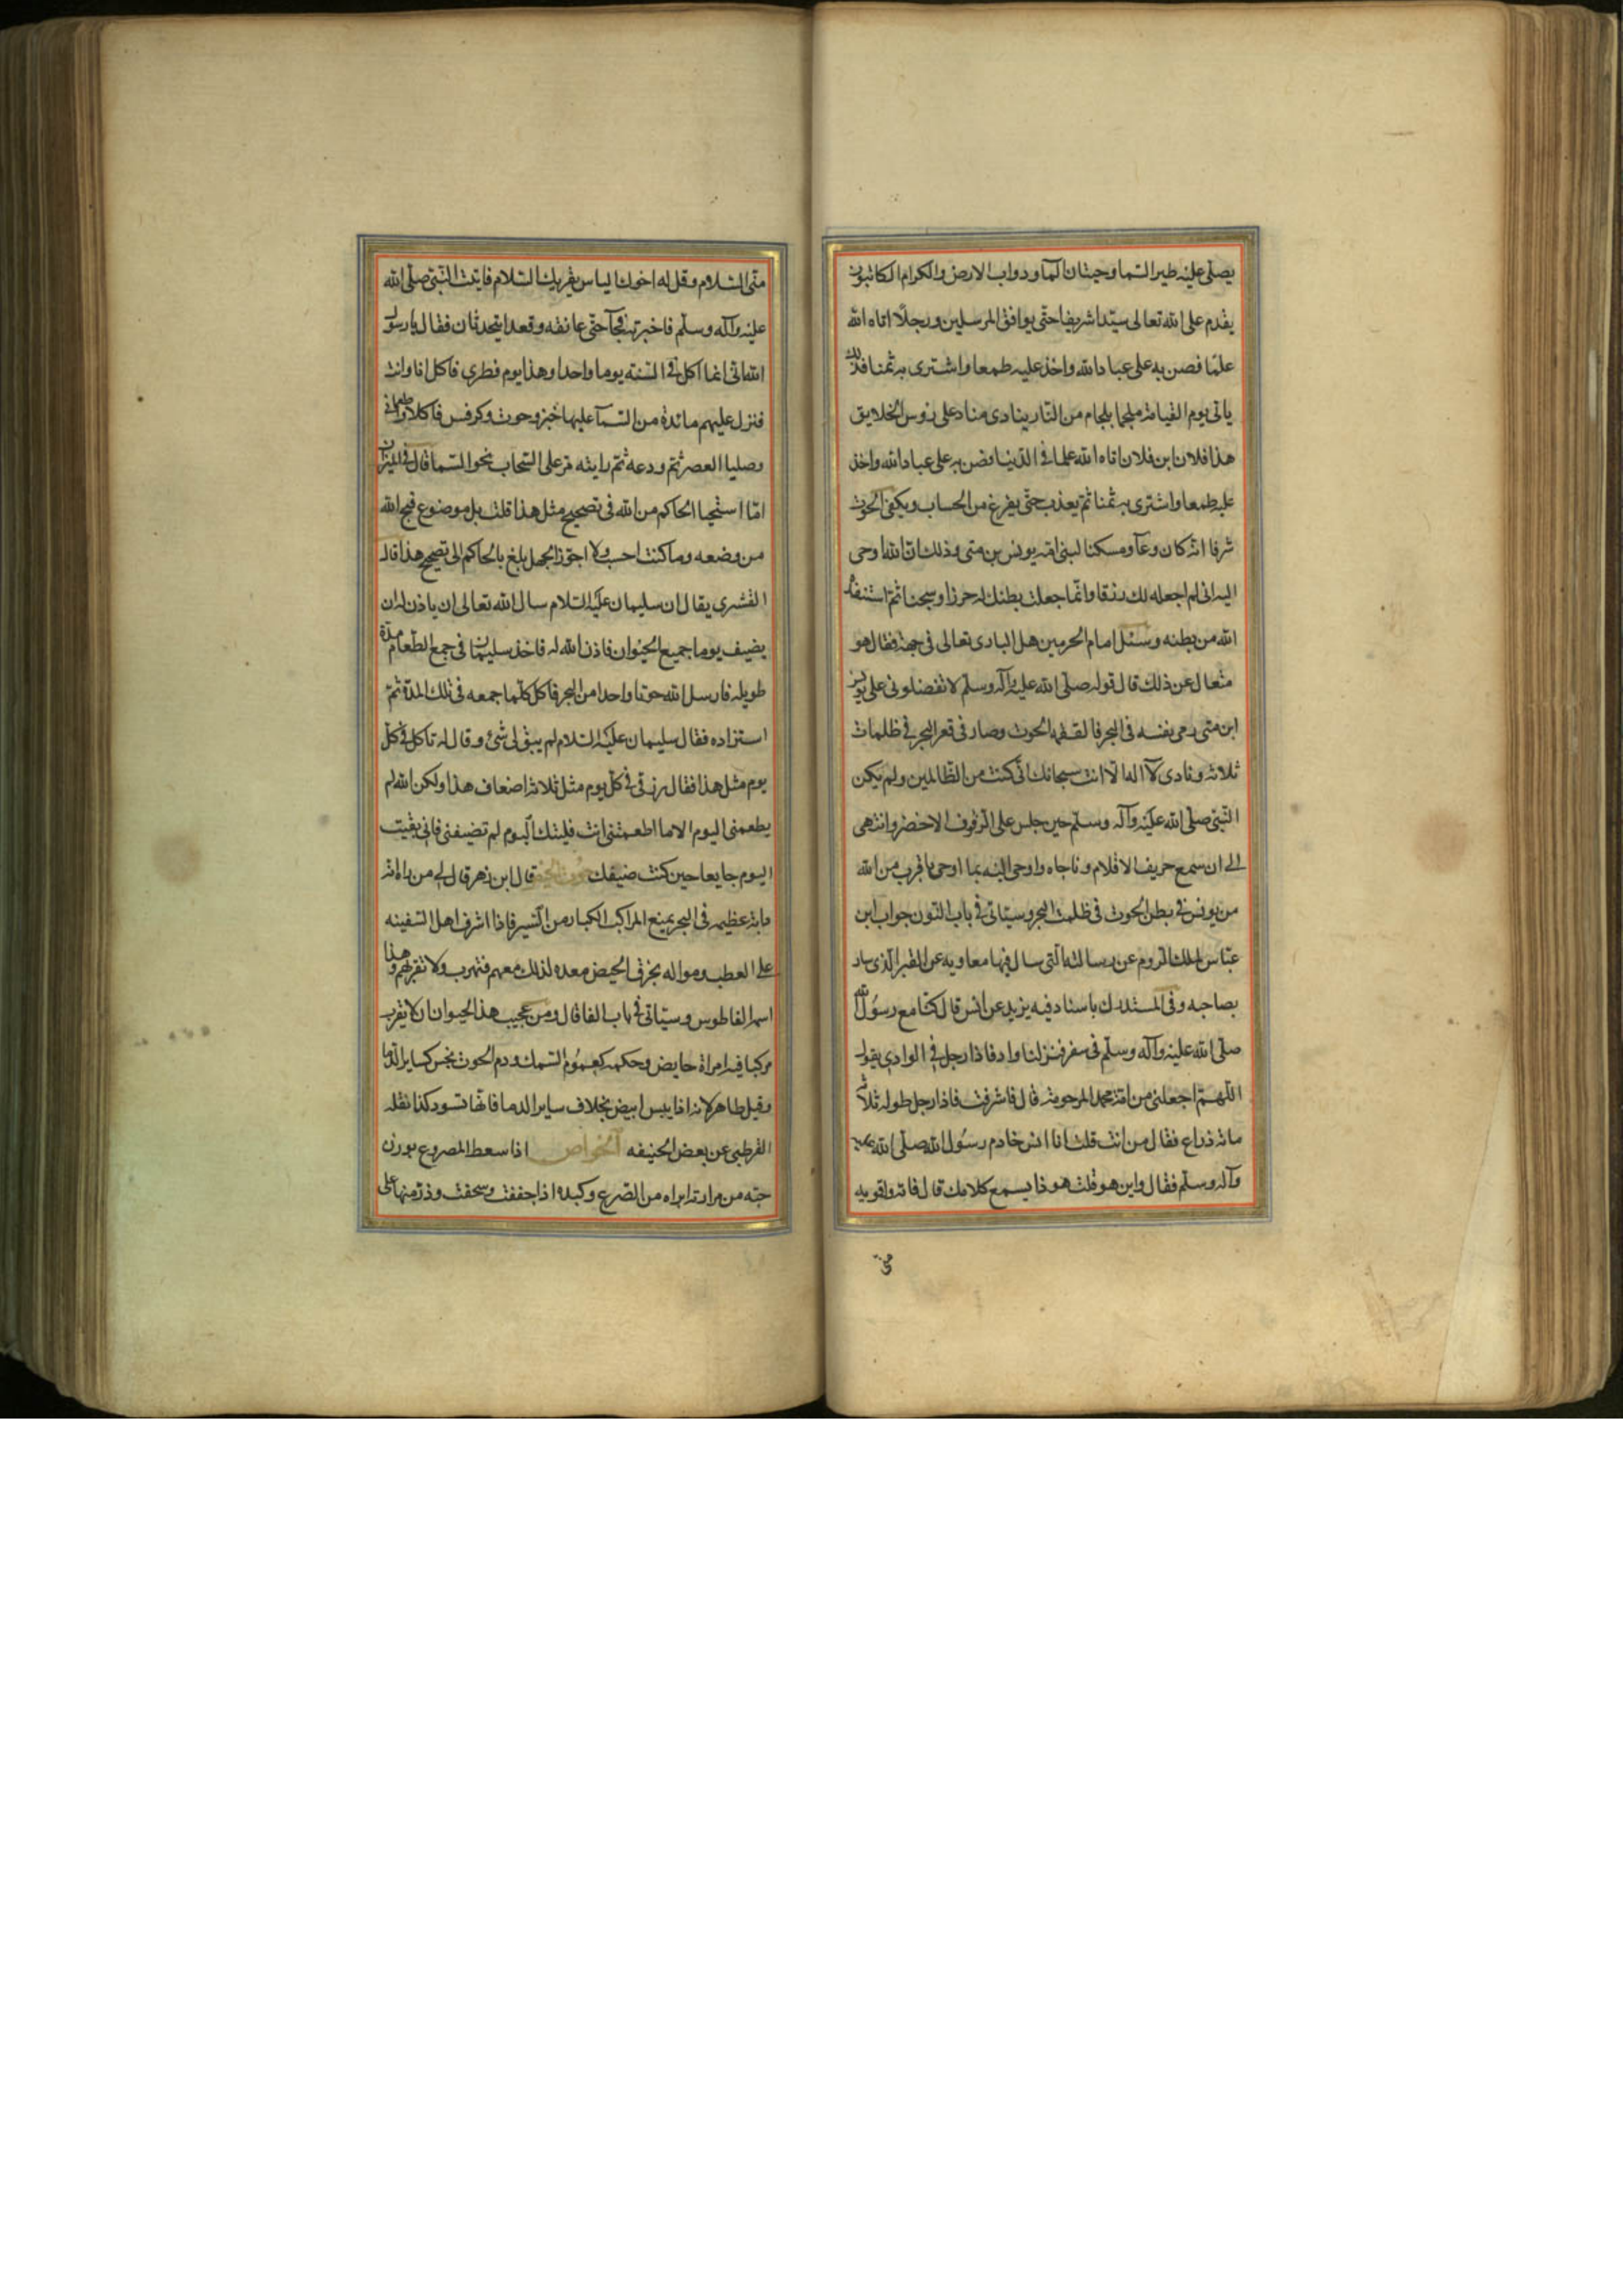 يصلى عليه طير السما وحيتان الما ودواب الارض والكرام الكاتبون
يقدم على الله تعالى سيدا شريفا حتى يوافق المرسلين ورجلا اتاه الله
علما فضن به على عباد الله واخذ عليه طمعا واشترى به ثمنا فذلك
ياتى يوم القيامة ملجما بلجام من النار ينادى مناد على روس الخلايق
هذا فلان ابن فلان اتاه الله علما فى الدنيا فضن به على عباد الله واخذ
عليه طمعا واشترى به ثمنا ثم يعذب حتى يفرغ من الحساب ويكفى الحوت
شرفا انه كان وعآ ومسكنا لنبى الله يونس بن متى وذلك ان الله اوحى
اليه انى لم اجعله لك رزقا وانما جعلت بطنك له حرزا وسجنا ثم استنقذه
الله من بطنه وسئل امام الحرمين هل البارى تعالى فى جهة فقال هو
متعال عن ذلك قال قوله صلى الله عليه وآله وسلم لا تفضلونى على يونس
ابن متى رمى بنفسه فى البحر فالتقمه الحوت وصار فى قعر البحر فى ظلمات
ثلاثه ونادى لآ اله الا انت سبحانك انى كنت من الظالمين ولم يكن
النبى صلى الله عليه وآله وسلم حين جلس على الرفرف الاخضر وانتهى
الى ان سمع صريف الاقلام وناجاه واوحى اليه بما اوحى باقرب من الله
من يونس فى بطن الحوت فى ظلمت البحر وسياتى فى باب النون جواب ابن
عباس لملك الروم عن رسالته التى سال فيها معاويه عن القبر الذى سار
بصاحبه وفى المستدرك باسناد فيه يزيد عن انس قال كنا مع رسول الله
صلى الله عليه وآله وسلم فى سفر فنزلنا واد فاذا رجل فى الوادى يقول
اللهم اجعلنى من امة محمد المرحومة قال فاشرفت فاذا رجل طوله ثلاث
مائة ذراع فقال من انت قلت انا انس خادم رسول الله صلى الله عليه
وآله وسلم فقال واين هو قلت هو ذا يسمع كلامك قال فاته واقريه
منى
منى السلام وقل له اخوك الياس يقريك السلام فاتيت النبى صلى الله
عليه وآله وسلم فاخبرته فجآ حتى عانقه وقعدا يتحدثان فقال يا رسول
الله انى انما اكل فى السنه يوما واحدا وهذا يوم فطرى فاكل انا وانت
فنزل عليهم مائدة من السمآ عليها خبز وحوت وكرفس فاكلا واطعمانى
وصليا العصر ثم ودعه ثم رايته مر على السحاب نحو السما قال فى الميزان
اما استحيا الحاكم من الله فى تصحيح مثل هذا قلت بل موضوع قبح الله
من وضعه وما كنت احسب ولا اجوز الجهل بلغ بالحاكم الى تصحيح هذا قال
القشرى يقال ان سليمان عليه السلام سال الله تعالى ان ياذن له ان
يضيف يوما جميع الحيوان فاذن الله له فاخذ سليمان فى جمع الطعام مدة
طويله فارسل الله حوتا واحدا من البحر فاكل كلما جمعه فى تلك المدة ثم
استزاده فقال سليمان عليه السلام لم يبق لى شئ وقال له تاكل فى كل
يوم مثل هذا فقال رزقى فى كل يوم مثل ثلاثة اضعاف هذا ولكن الله لم
يطعمنى اليوم الا ما اطعمتنى انت فليتك اليوم لم تضيفنى فانى بقيت
اليوم جايعا حين كنت ضيفك حوت الحيض قال ابن زهر قال لى من راه انه
دابة عظيمه فى البحر يمنع المراكب الكبار من السير فاذا اشرف اهل السفينه
على العطب رموا له بخرق الحيض معده لذلك معهم فتهرب ولا تقربهم وهذا
اسم الفاطوس وسياتى فى باب الفا قال ومن عجيب هذا الحيوان ان لا يقرب
مركبا فيه امراة حايض وحكمه كعموم السمك ودم الحوت نجس كساير الدما
وقيل طاهر لانه اذا يبس ابيض بخلاف ساير الدما فانها تسود كذا نقله
القرطبى عن بعض الحنيفه الخواص اذا سعط المصروع بوزن
حبه من مرارته ابراه من الصرع وكبده اذا جففت وسحقت وذر منها على